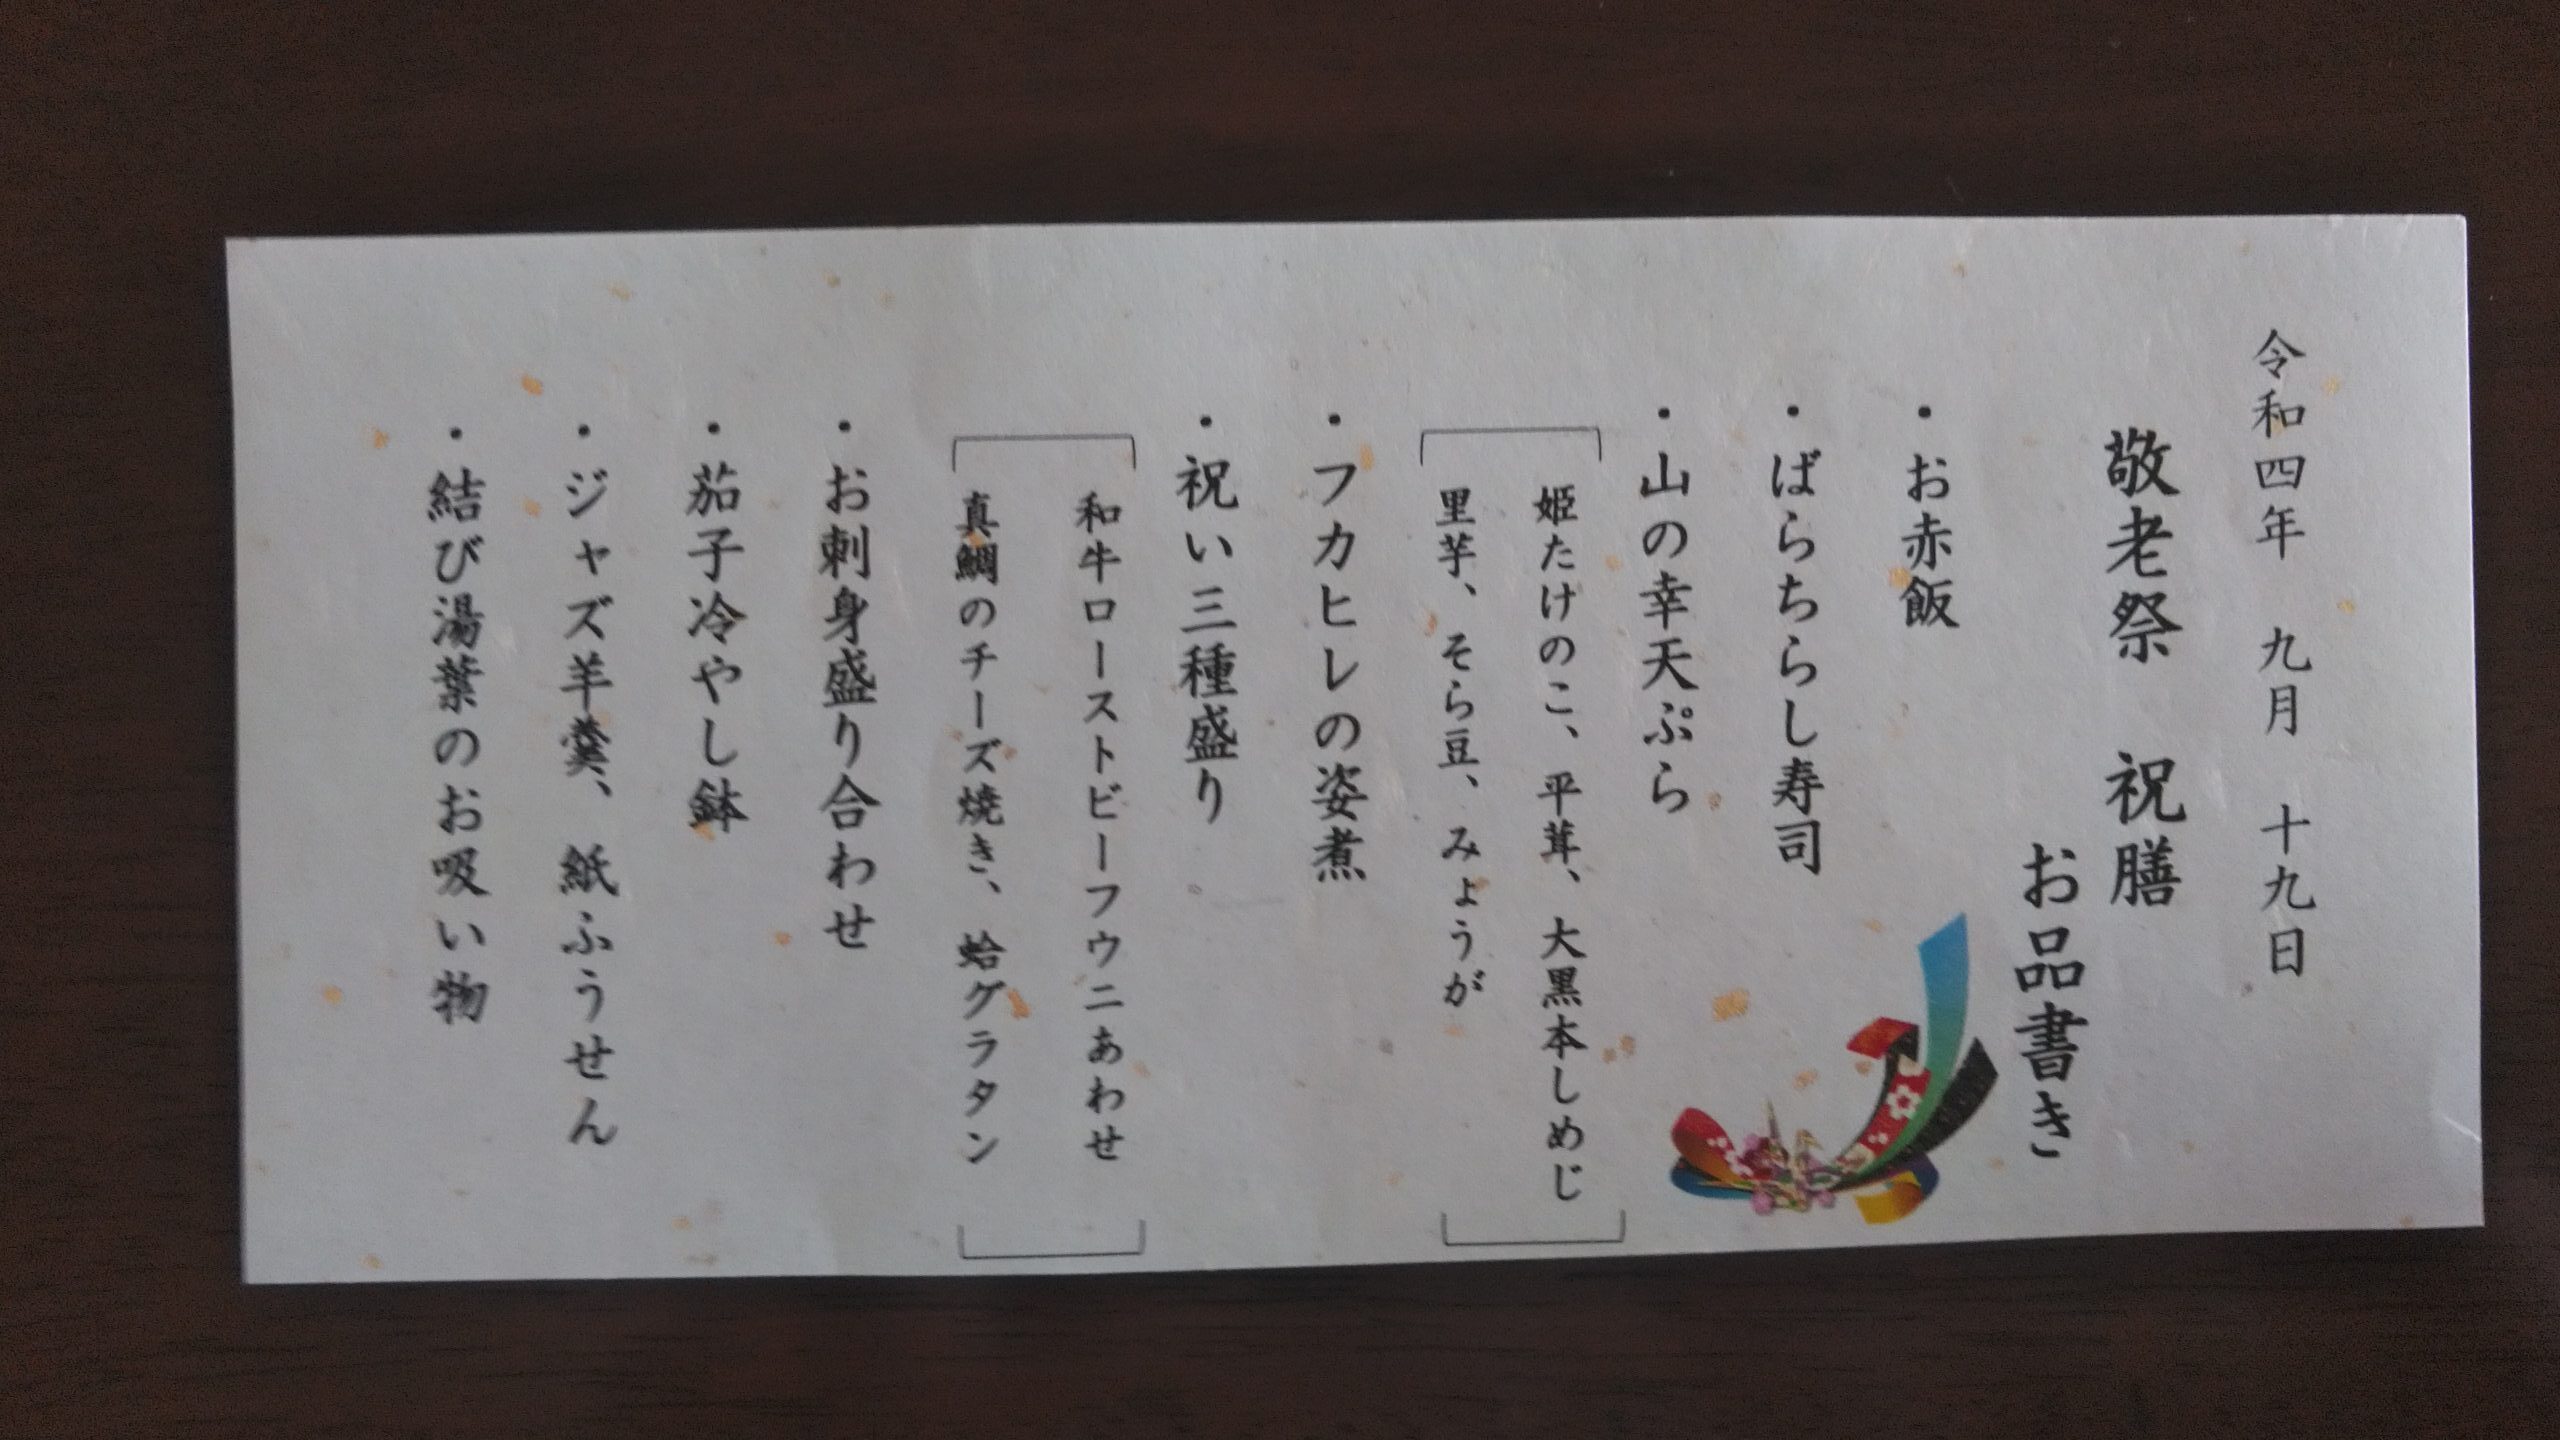 令和四年　九月　十九日
敬老祭　祝膳
お品書き
・お赤飯
・ばらちらし寿司
・山の幸天ぷら
姫たけのこ、平茸、大黒本しめじ
里芋、そら豆、みょうが
・フカヒレの姿煮
・祝い三種盛り
和牛ローストビーフウニあわせ
真鯛のチーズ焼き、蛤グラタン
・お刺身盛り合わせ
・茄子冷やし鉢
・ジャズ羊羹、紙ふうせん
・結び湯葉のお吸い物